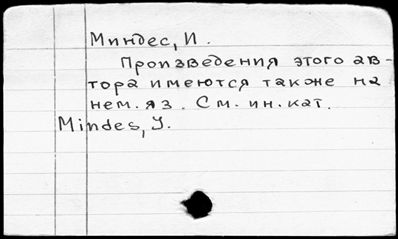 Миндес, И.
Произведения этого ав-
тора имеются также на
нем. яз. См. ин. кат.
Mindes, J.